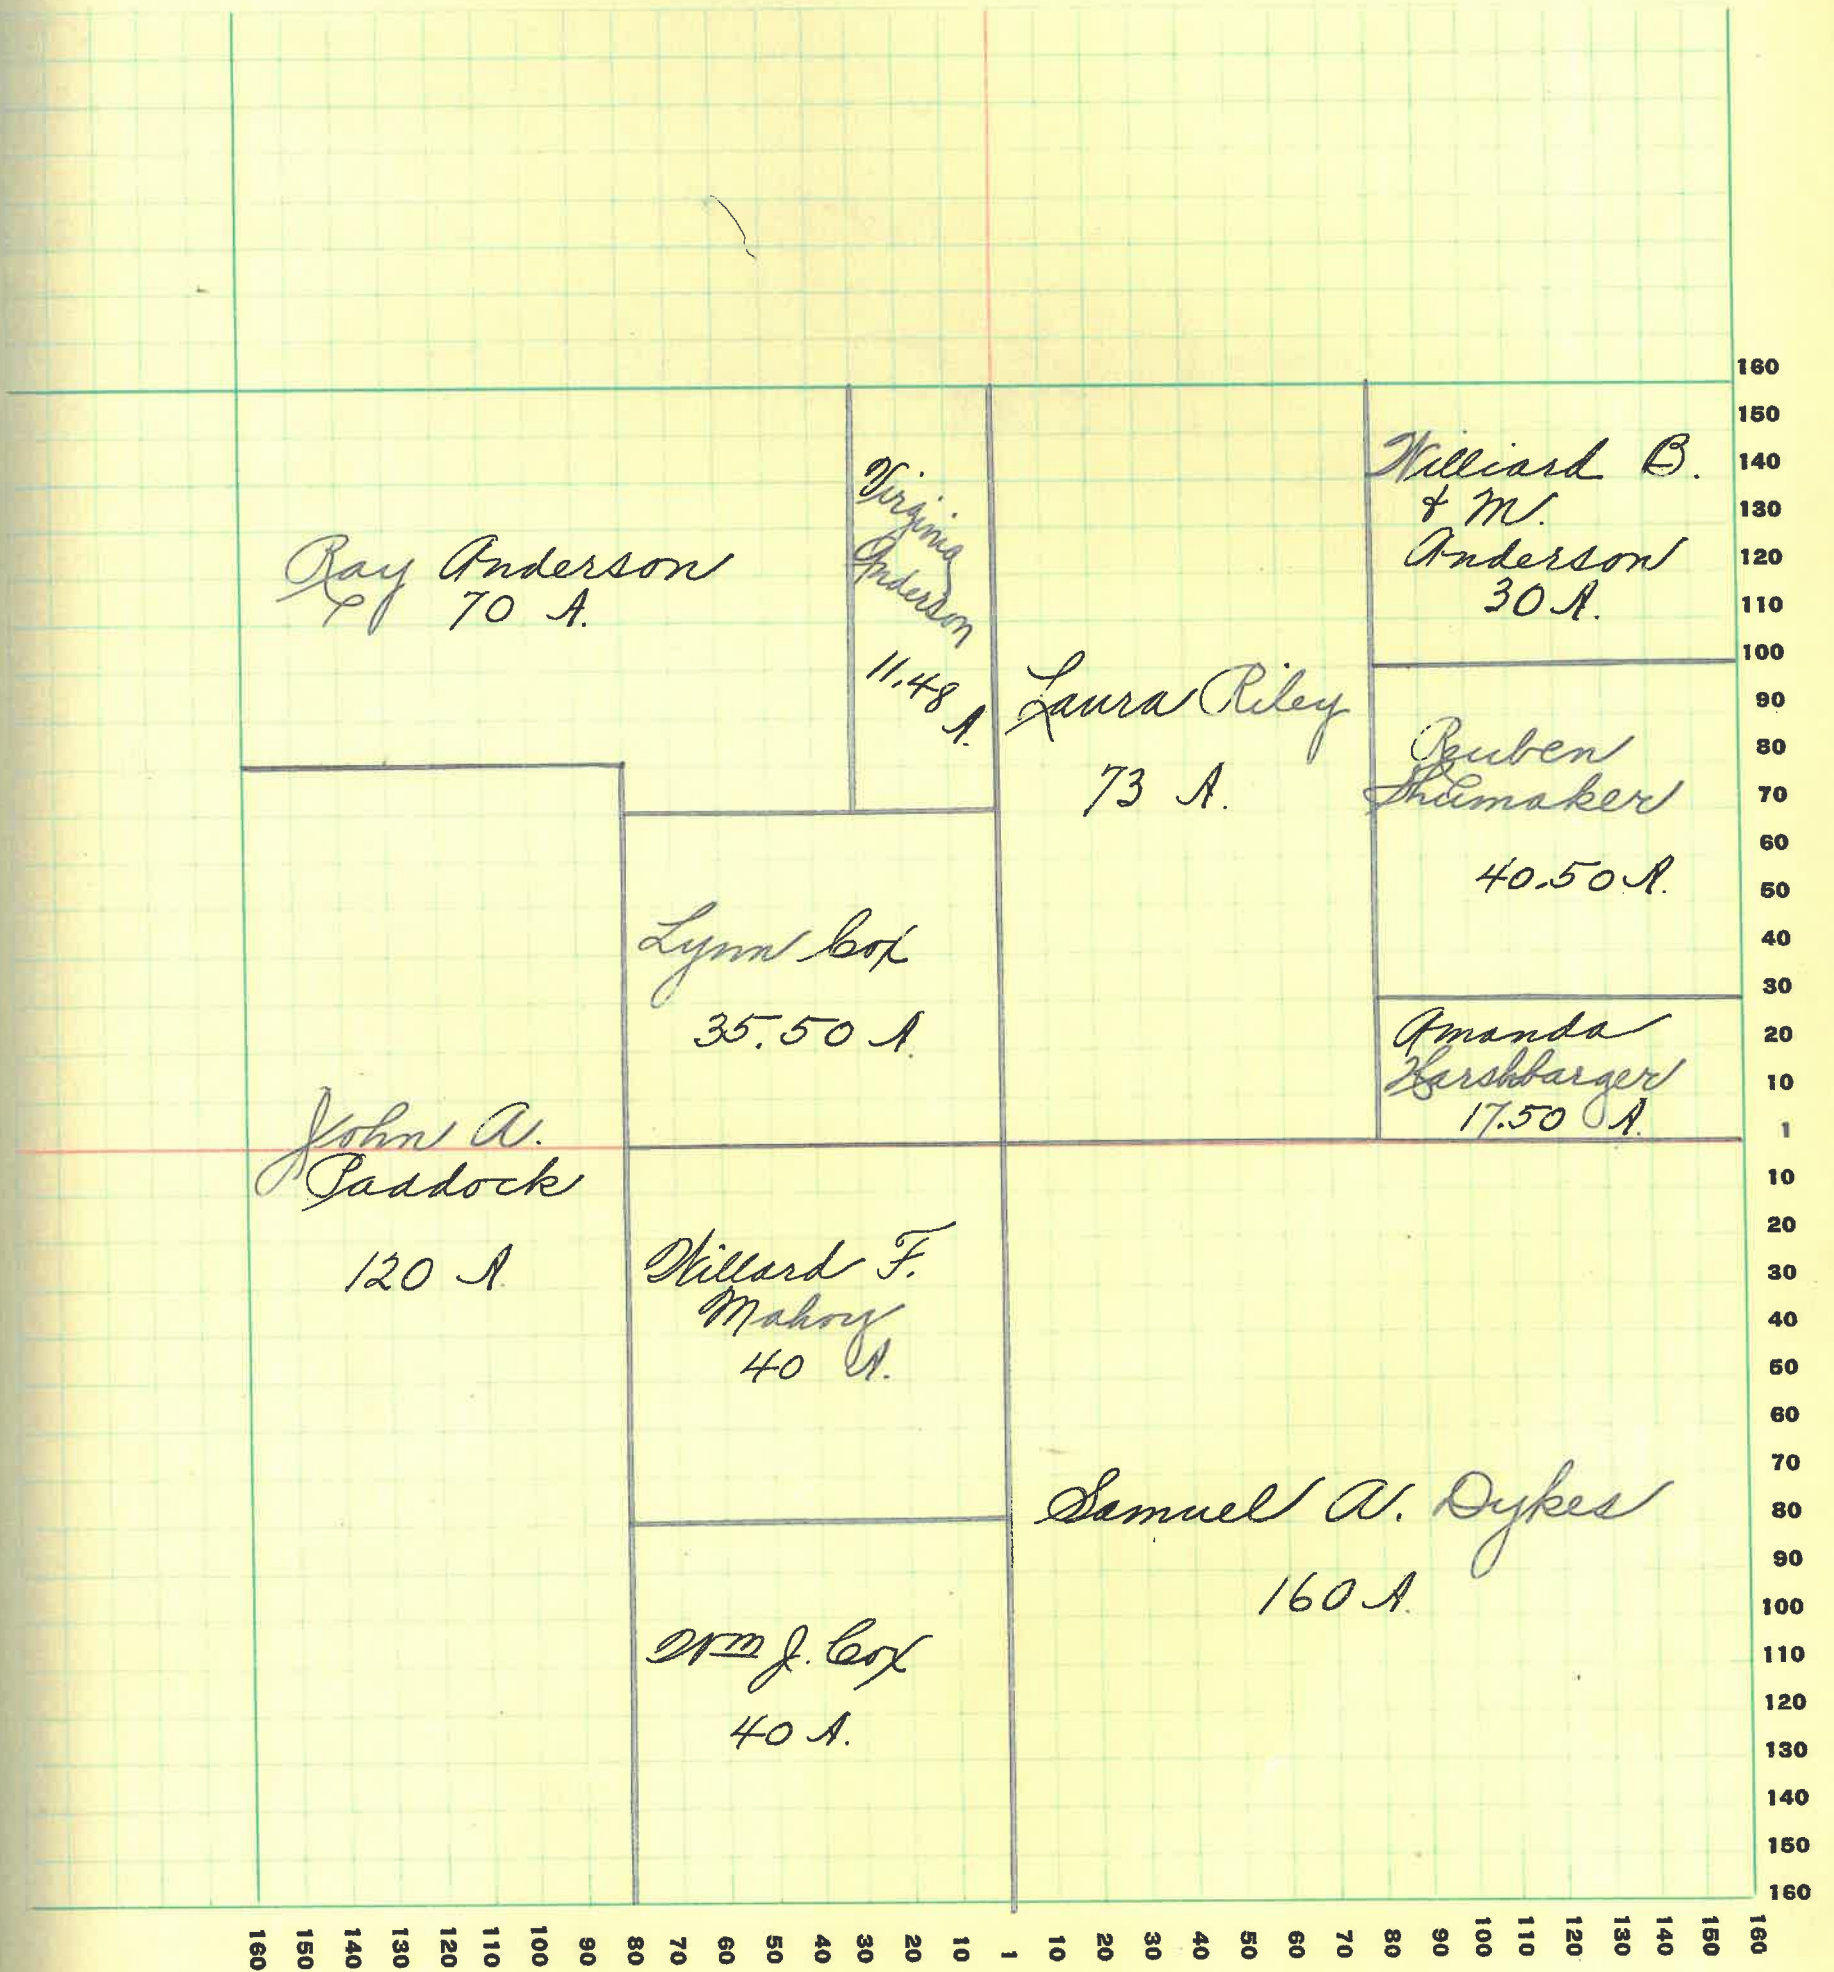 Ray Anderson
70 A.
Virginia
Anderson
11.48
A.
Laura Riley
73 A.
Williard B.
& M.
Anderson
30 A.
Reuben
Shumaker
40.50 A.
Amanda
Harshbarger
17.50 A.
Lynn Cox
35.50 A.
John A.
Paddock
120 A.
Willard F.
Mahoy
40 A.
Samuel A. Dykes
160 A.
Wm J. Cox
40 A.
160
150
140
130
120
110
100
90
80
70
60
50
40
30
20
10
1
10
20
30
40
50
60
70
80
90
100
110
120
130
140
150
160
160 150 140 130 120 110 100 90 80 70 60 50 40 30 20 10 1 10 20 30 40 50 60 70 80 90 100 110 120 130 140 150 160